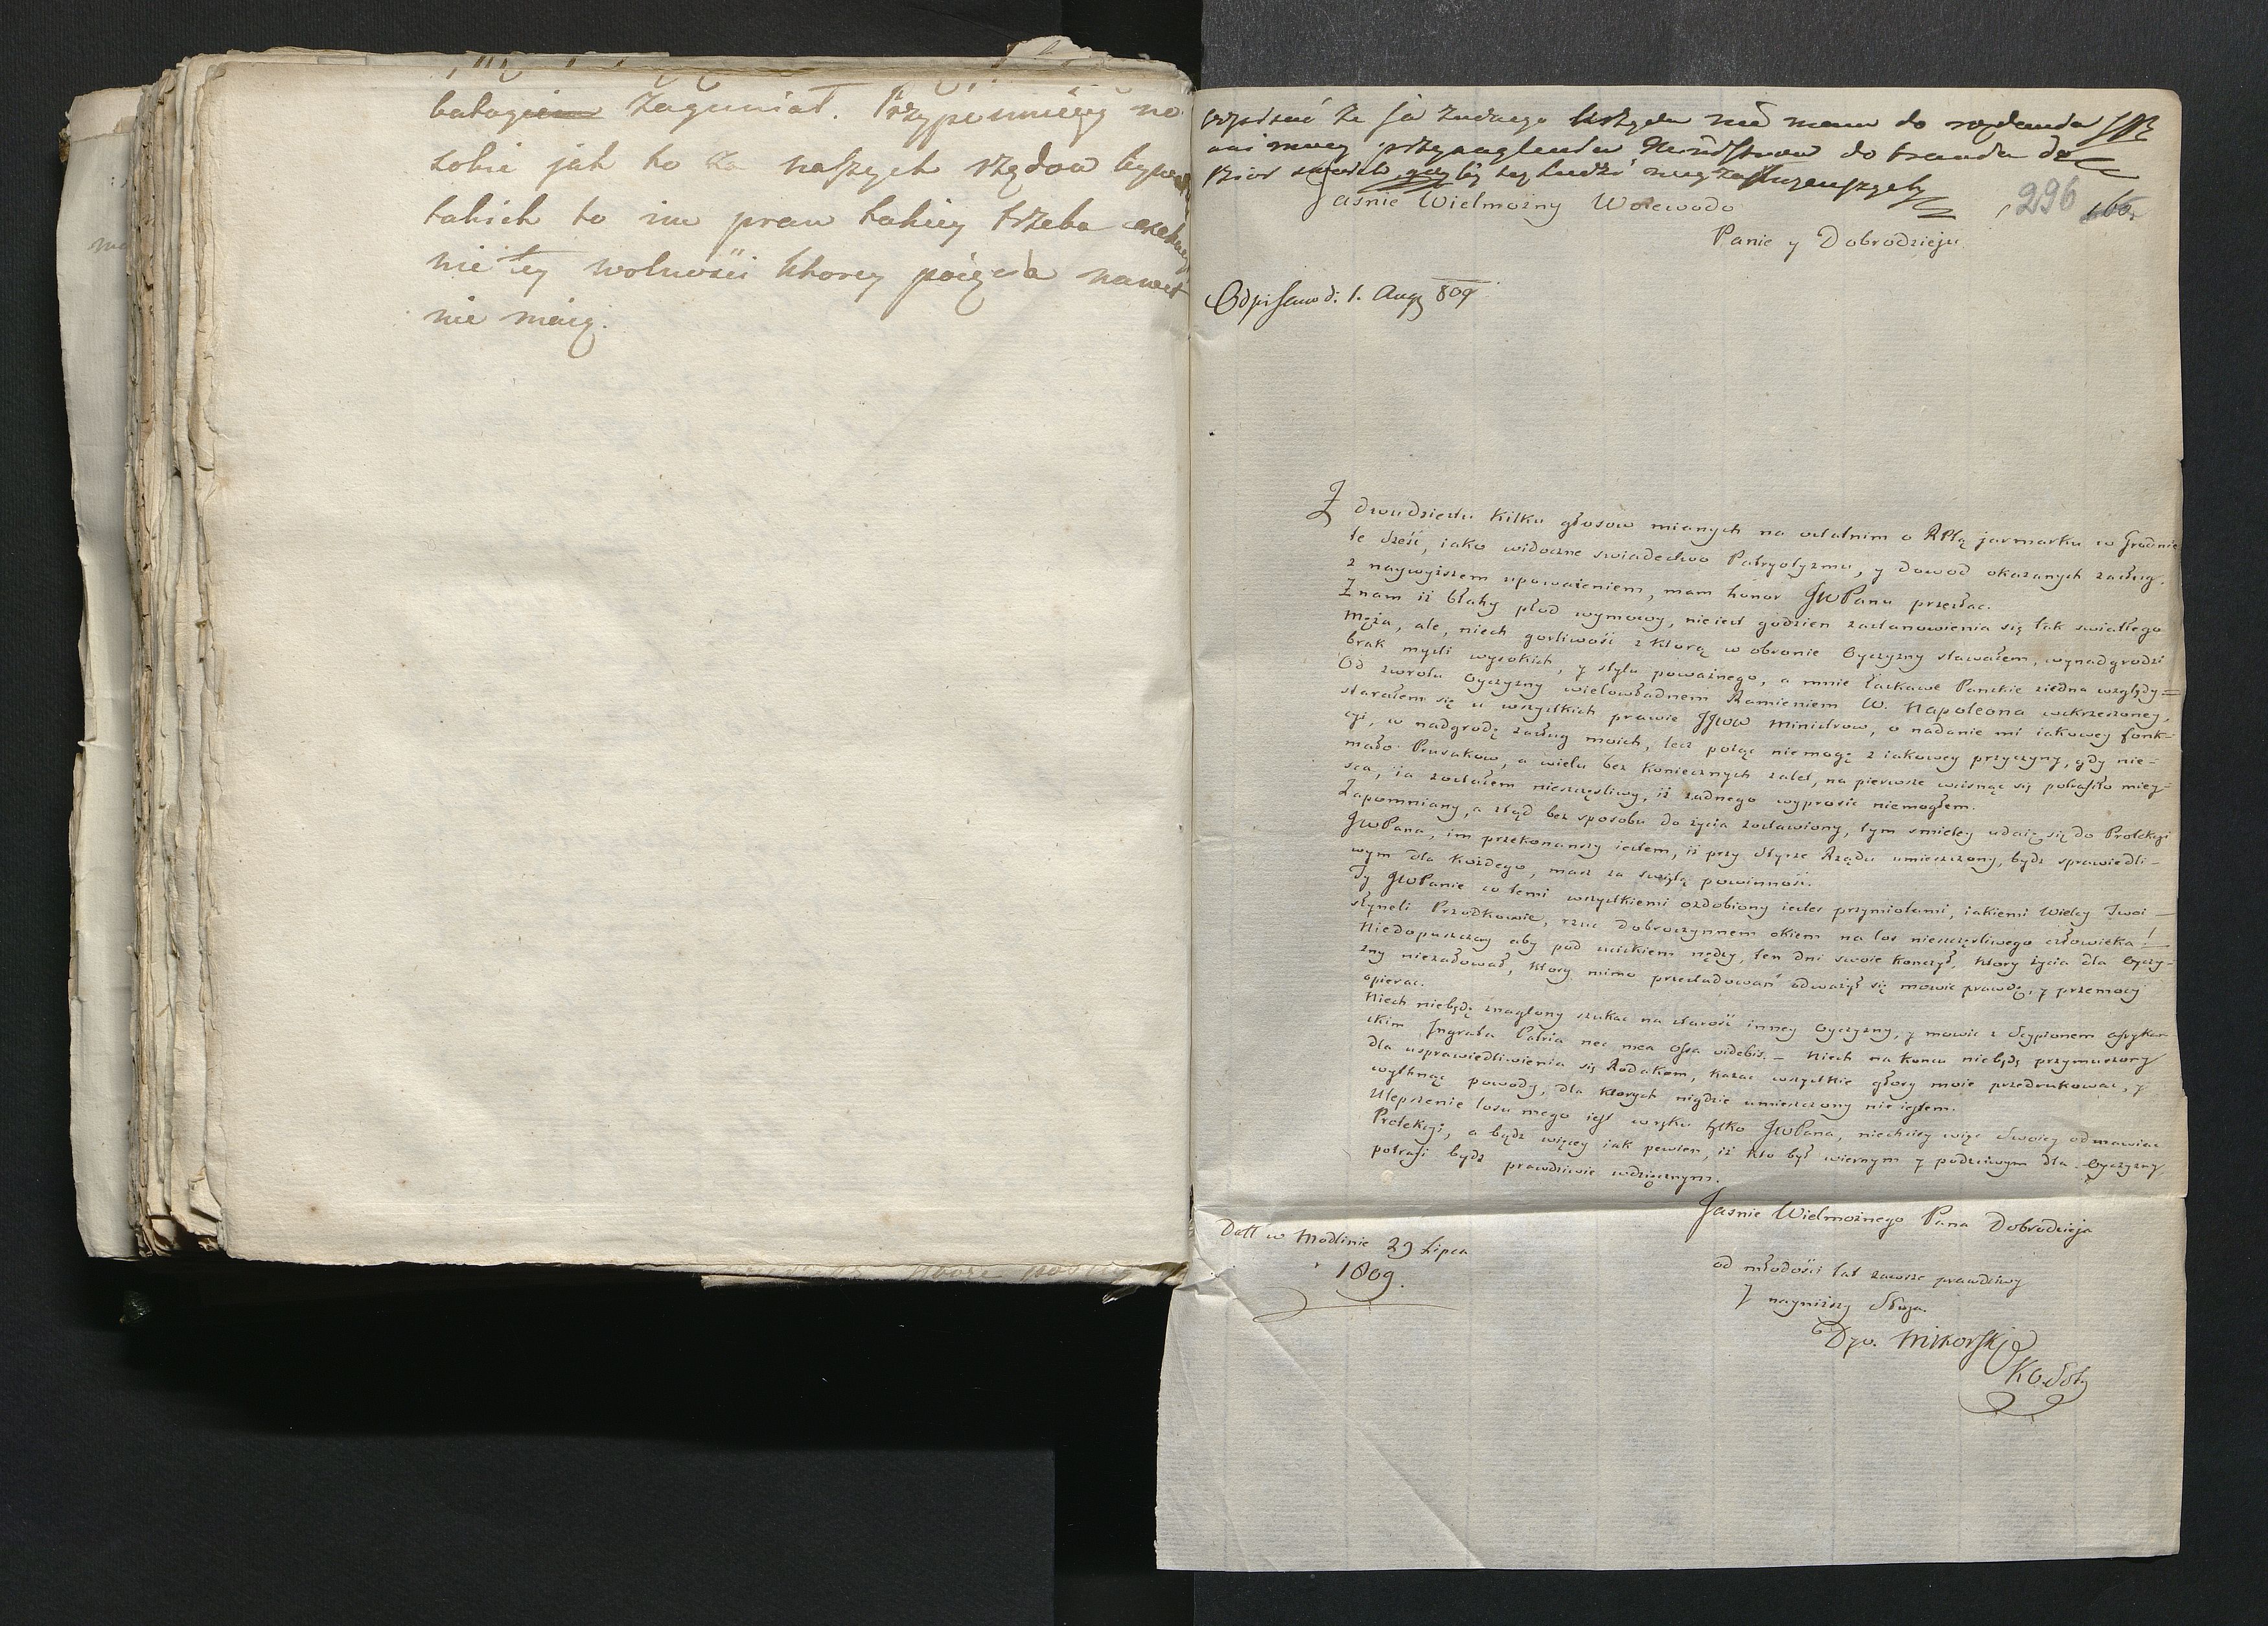 zaguniał. Przypomniycy no
sobie jak to za naszych rządow bywa
takich to im praw takiey trzeba
nie tey wolności ktorey poięcia nawet
nie maią.
odpisać że ja żadnego Urzędu nie mam do rozdania
ani mocy przynaglenia Ministrow do brania do
Jaśnie Wielmożny Woiewodo
296
Panie y Dobrodzieju
Odpisano d. 1. Aug 809
Z dwudziestu kilku głosow mianych na ostatnim o RPtą jarmarku w Grodnie
te sześć, iako widoczne swiadectwo Patryotyzmu, y dowod okazanych zasług,
z naywyższem upoważeniem, mam honor JWPanu przesłac.
Znam iż błahy płod wymowy, nieiest godzien zastanowienia się tak swiatłego
Męża, ale, niech gorliwość z ktorą w obronie Oyczyzny stawałem, wynadgrodzi
brak mysli wysokich, y stylu poważnego, a mnie łaskawe Panskie ziedna względy=
Od zwrotu Oyczyzny wielowładnem Ramieniem W. Napoleona wskrzeszoney,
starałem się u wszystkich prawie JJWW Ministrow, o nadanie mi iakowey fonk-
cyi, w nadgrodę zasług moich, lecz poiąc niemogę z iakowey przyczyny, gdy nie-
mało Prusakow, a wielu bez koniecznych zalet, na pierwsze wcisnąc się potrafiło miey-
sca, ia zostałem nieszczęsliwy, iż żadnego wyprosic niemogłem.
Zapomniany, a ztąd bez sposobu do życia zostawiony, tym smieley udaię się do Protekcyi
JWPana, im przekonanszy iestem, iż przy sterze Rządu umieszczony, bydz sprawiedli-
wym dla każdego, masz za swiętą powinność.
Ty JWPanie co temi wszystkiemi ozdobiony iestes przymiotami, iakiemi Wielcy Twoi
słyneli Przodkowie, rzuc dobroczynnem okiem na los nieszczęsliwego człowieka!
Niedopuszczay aby pod uciskiem nędzy, ten dni swoie konczył, ktory życia dla Oyczy-
zny nieżałował, ktory mimo przesladowań odważył się mowic prawdę, y przemocy
opierac.
Niech niebędę znaglony szukac na starość inney Oyczyzny, y mowic z Scypionem Afrykan-
skim Ingrata Patria nec mea ossa videbis. – Niech na koncu niebędę przymuszony
dla usprawiedliwienia się Rodakom, kazac wszystkie głosy moie przedrukowac, y
wytknąc powody, dla ktorych nigdzie umieszczony nie iestem.
Ulepszenie losu mego iest w ręku tylko JWPana, niechciey więc Swoiey odmawiac
Protekcyi, a bądz więcey iak pewien, iż kto był wiernym y poczciwym dla Oyczyzny,
potrafi bydz prawdziwie wdzięcznym.
Jasnie Wielmożnego Pana Dobrodzieja
Datt w Modlinie 29 Lipca
1809.
od młodości lat zawsze prawdziwy
y nayniższy Sługa.
Dyo. Mikorski